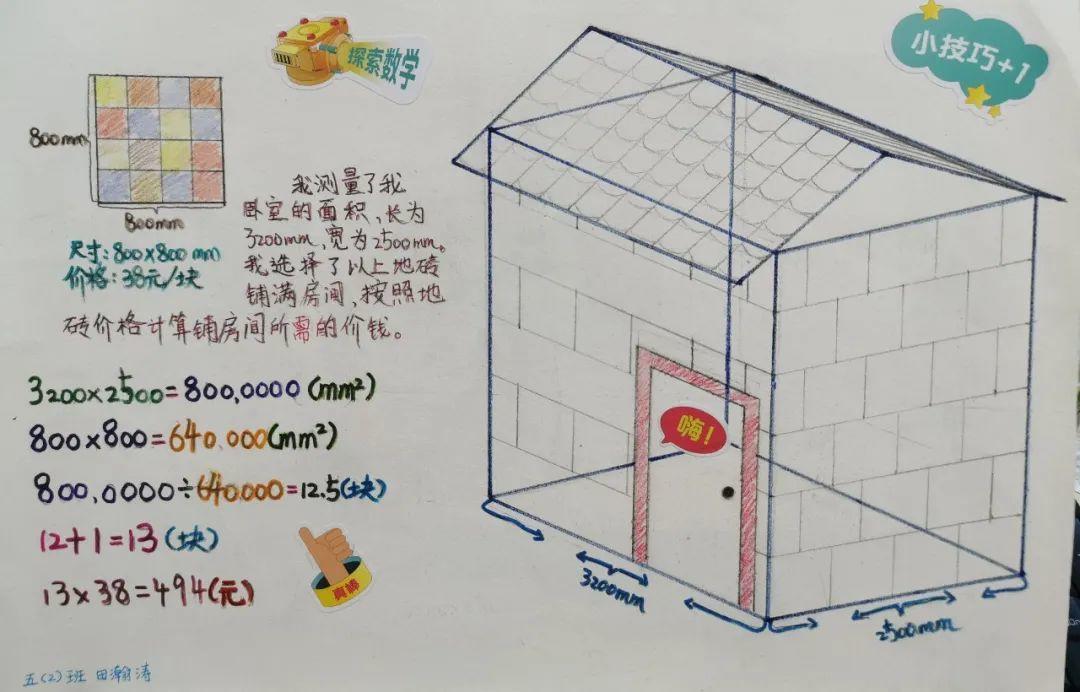 探索数学
小技巧+1
800mm
800mm
尺寸:800×800 mm
价格:38元/块
我测量了我
卧室的面积、长为
3200mm,宽为2500mm。
我选择了以上地砖
铺满房间,按照地
砖价格计算铺房间所需的价钱。
3200×2500=800,0000(mm²)
800×800=640.000(mm²)
800,0000÷640.000=12.5(块)
12+1=13(块)
13×38=494(元)
真棒
嗨!
3200mm
2500mm
五(2)班 田瀚涛